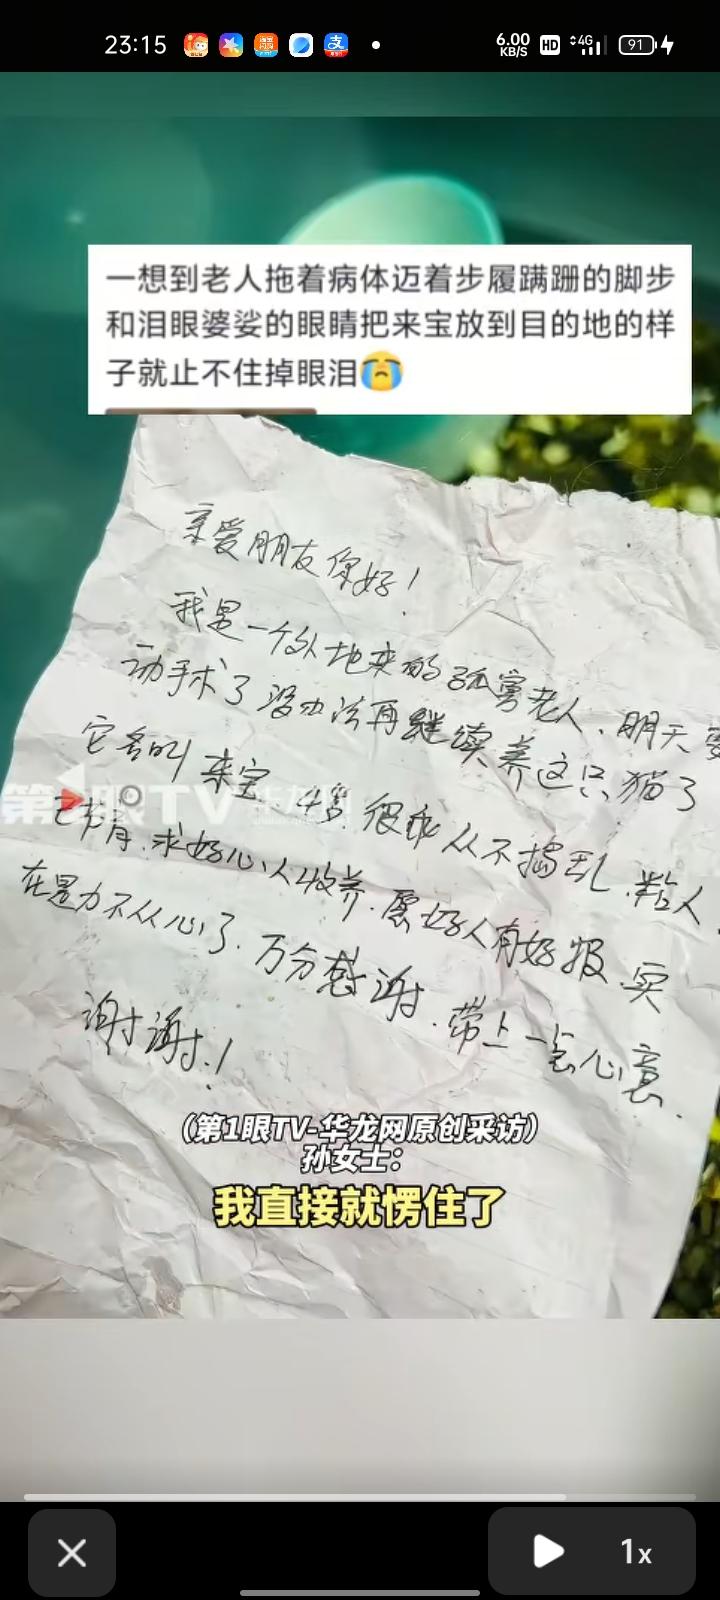 23:15
6.00
KB/S
HD
4G
91
一想到老人拖着病体迈着步履蹒跚的脚步
和泪眼婆娑的眼睛把来宝放到目的地的样
子就止不住掉眼泪😭
亲爱朋友你好！
我是一个外地来的孤寡老人、明天要
动手术了没办法再继续养这只猫了
它名叫来宝 4岁.很乖从不捣乱.粘人.
求好心人收养.愿好人有好报 实
在是力不从心了.万分感谢.带上一点心意.
谢谢!
第1眼TV 华龙网
（第1眼TV-华龙网原创采访）
孙女士：
我直接就愣住了
1x